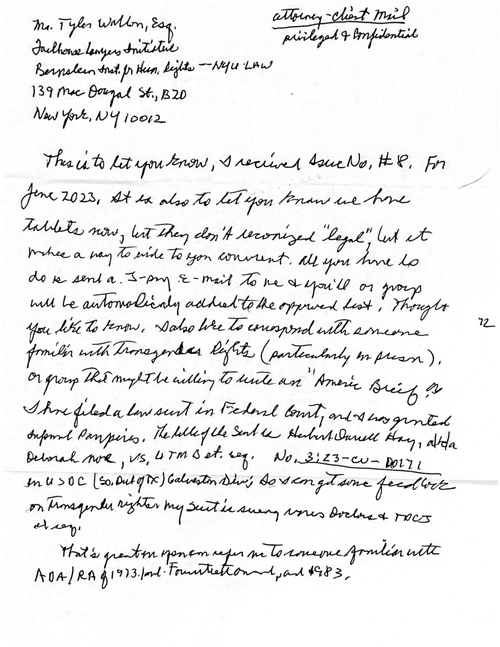 attorney-client Mail
privileged & Confidential
Mr. Tyler Walton, Esq.
Jailhouse Lawyers Initiative
Bernstein Inst. for Hum. Rights — NYU LAW
139 Mac Dougal St., B20
New York, NY 10012
This is to let you know, I recieved Issue No, #8. For
June 2023. It is also to let you know we have
tablets now, but they don't reconized "legal", but it
makes a way to write to you convenent. All you have to
do is send a J-pay E-mail to me & you'll or group
will be automaticly added to the approved list. Thought
you like to know. I also like to correspond with someone
familiar with Transgender Rights (particularly in prison).
or group that might be willing to write an "Americ Brief"?
72
I have filed a law suit in Federal Court, and I was granted
Informa Pauperis. The title of the Suit is Herbert Darrell Hay, a/k/a
Deborah, VS, UTMB et. seq. No. 3:23-cv-00171
in USDC (So. Dist of TX) Galveston Div. So I can get some feed back
on Transgender rights my Suit is suing various Doctors & TDCJ
et seq.
That's great or you can refer me to someone familiar with
ADA/RA of 1973. and Fourteenth, and § 1983.